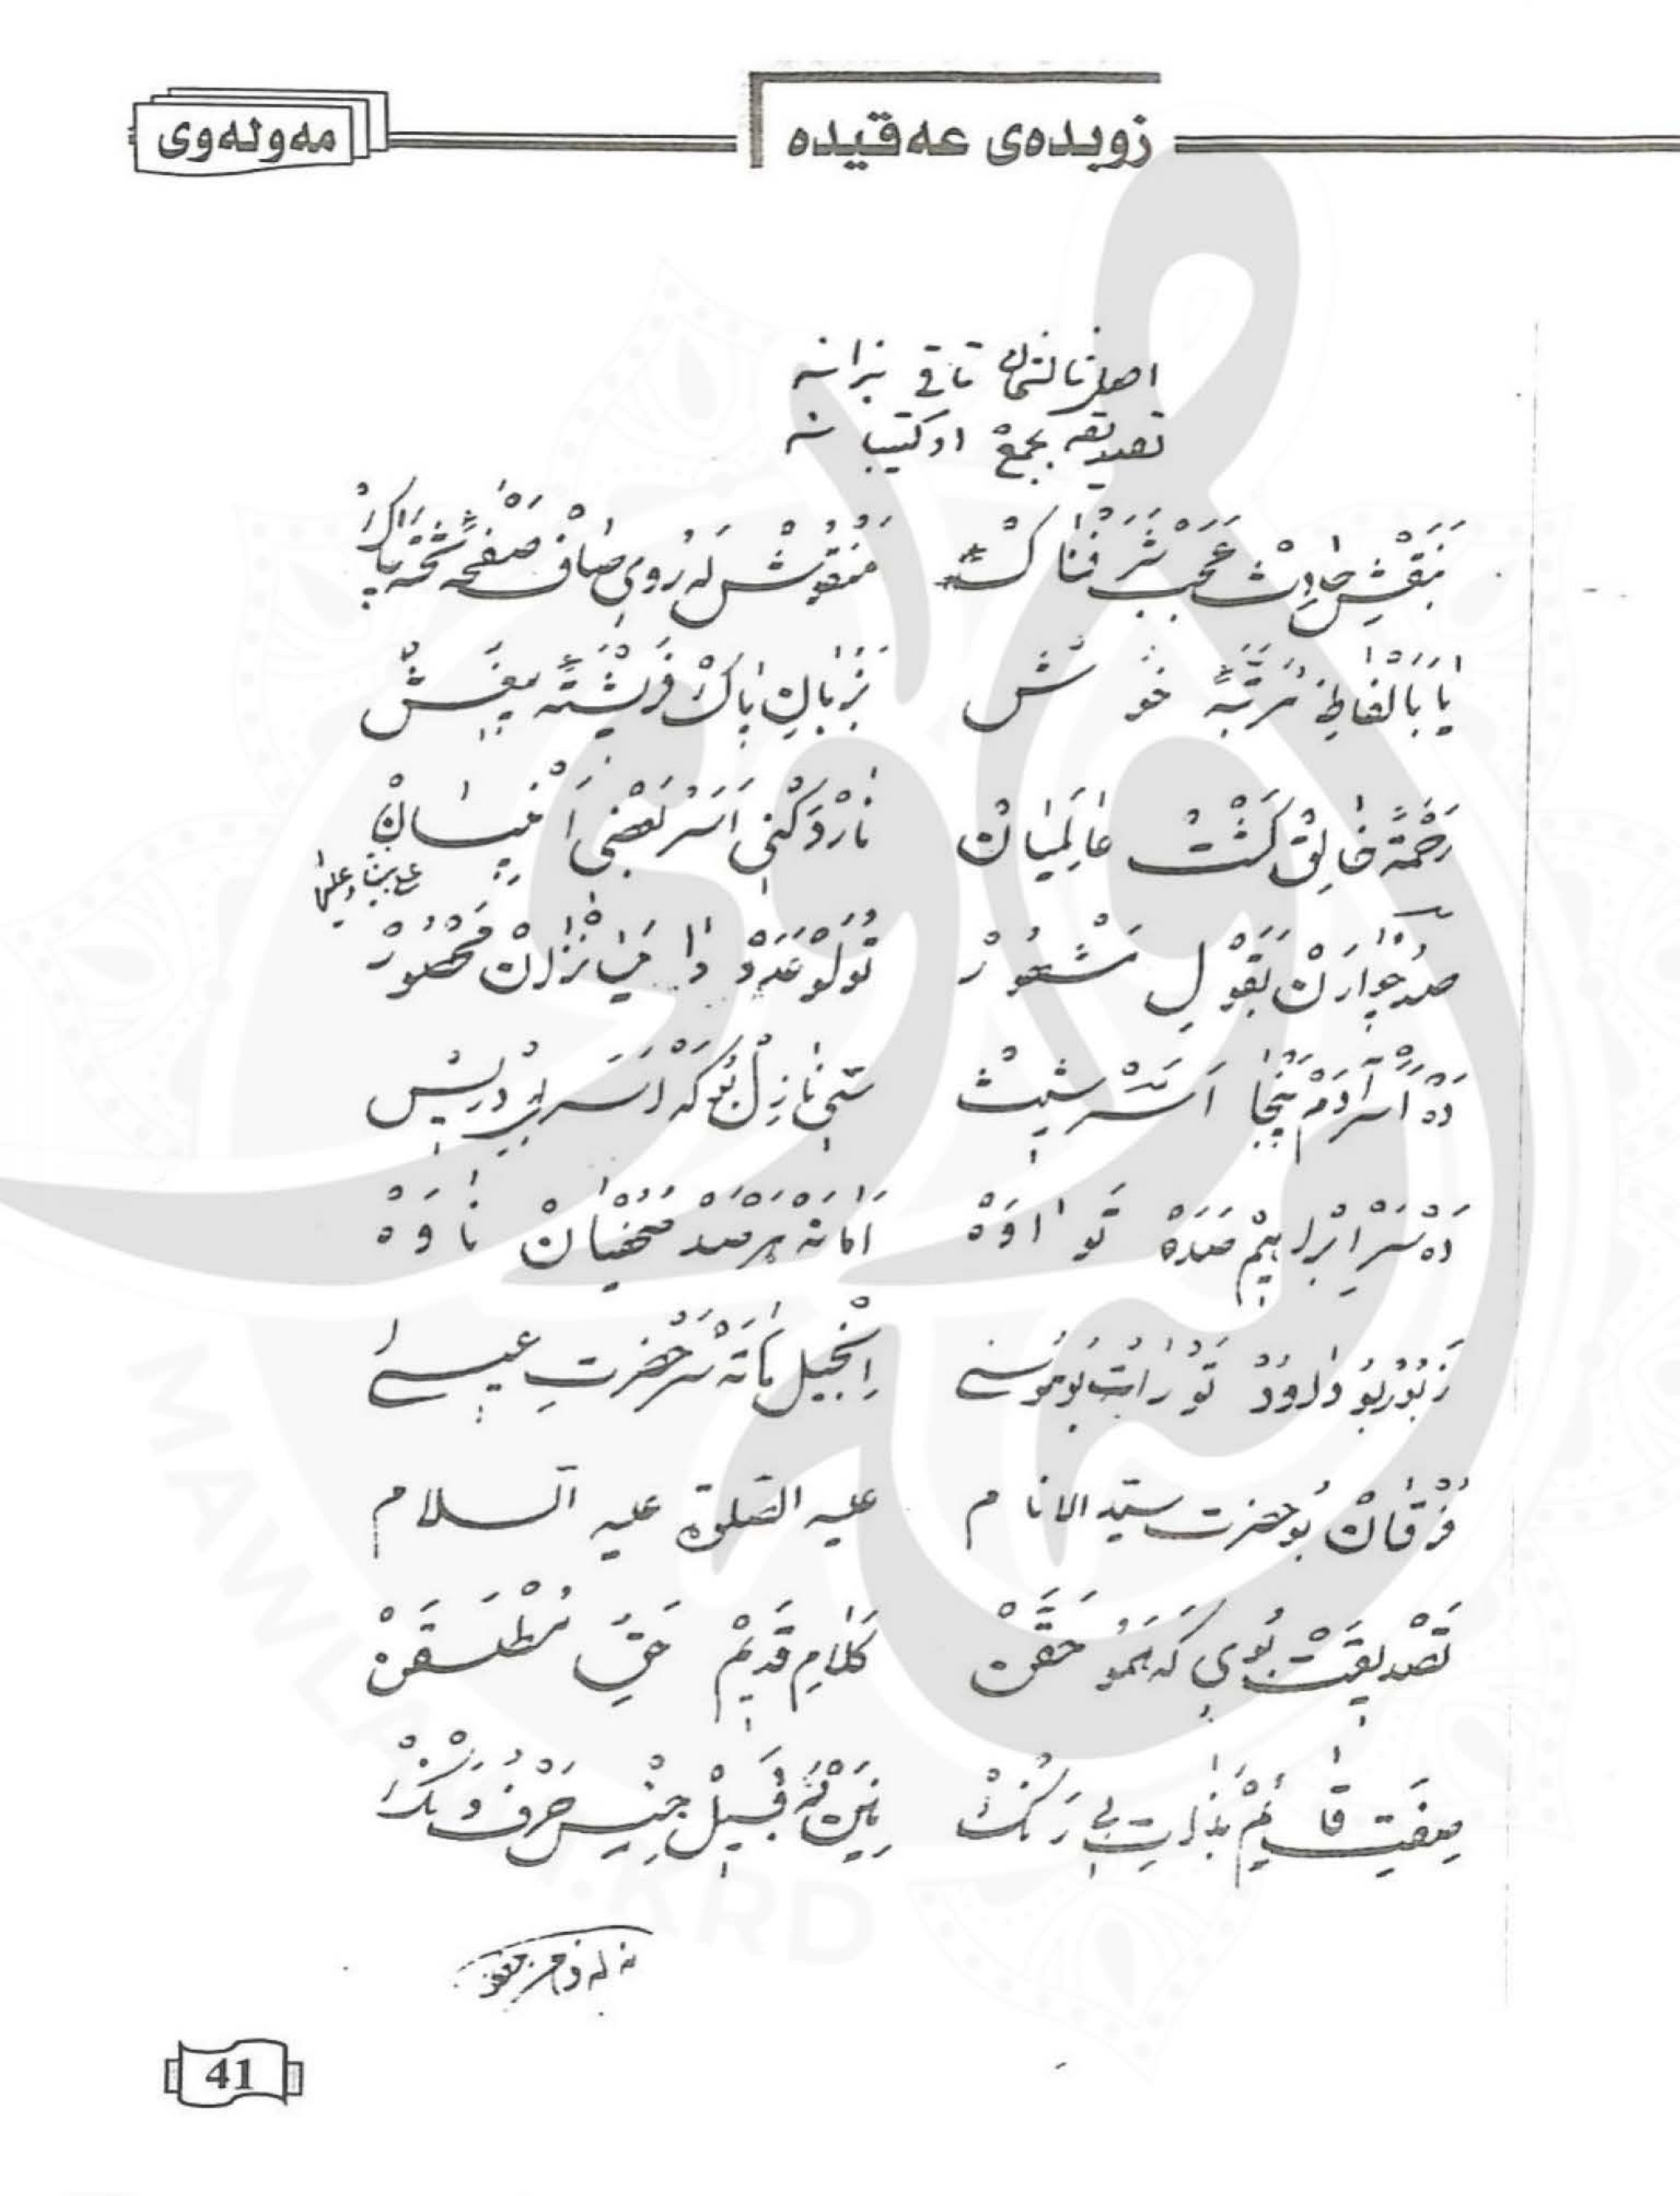 زوبدەی عەقیدە
مەولەوی
اصل ثالثمان تاقی بزانه
تصدیقه بجمع او کتیبانه
نَقْشِ حادِثْ عَجَبْ شَرَفْناکْ مَنْقُوشْ لَه رُوی صافْ صَفْحَهٔ تَخْتَه پاکْ
یا بَالْفاظِ مُرَتَّبَهٔ خوش بَزُبانِ پاکْ فَرِشْتَهٔ بیغشّ
رَحْمَةً خالِق گَشْتْ عالِمیانْ ناردْ کُتبی اَسَر بَعْضی اَنْبیسانْ
صدُ چوارنْ بَقَوْلِ مَشْهُورْ نَوَلَوْ عَدَدْ دا نازلانْ مَحْصُورْ
دَهْ اَسَر آدَمْ پَنْجا اَسَرْ شیثْ سی نازِلْ بُو که اَسَر اِدْریسْ
دَهْ سَر اِبْراهیمْ صَدَهْ تَواوَهْ اَمانَهْ هَرْصَدْ صُحُفْیانْ ناوَهْ
زَبُورْ بُو داوُودْ تَوْرات بُو مُوسی اِنْجیل هاتَه سَر حَضْرَتِ عیسی
فُرْقانْ بُو حضرت سیّد الانام علیه الصّلوة علیه السلام
تَصْدیقَتْ بُوی که هَمُو حَقَّنْ کَلامِ قَدیمْ حَقِّ مُطْلَقَنْ
صِفَتِ قائمْ بذاتِ بی رَنْگْ نِینْ لَه قَبیلْ جِنْسِ حَرْفْ وَ دَنْگْ
41